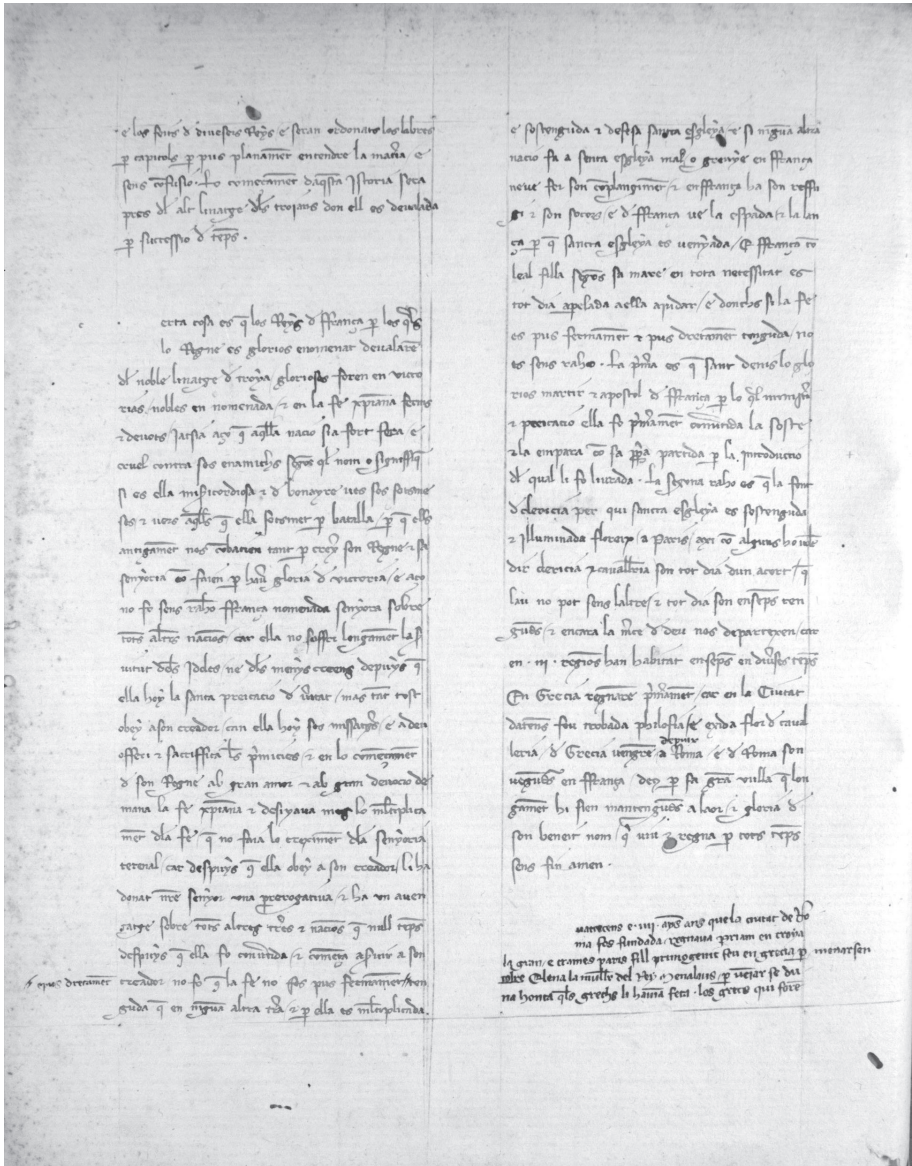 e los feits d diuerses Reys e seran ordonats los libres
p capitols p pus planamet entendre la mat'ia e
sens cofusio. Lo comecamet daqsta Istoria sera
pres dl alt linatge dls troians don ell es deualada
p successio d teps.
erta cosa es q los Reys d ffrança p los qls
lo Regne es glorios e nomenat deualaren
dl noble linatge d troya gloriosos foren en victo
rias, nobles en nomenada, & en la fe xpiana ferms
& deuots Jatsia aço q aqlla nacio sia fort fera e
cruel contra sos enamichs segos ql nom o signiffiq
si es ella misericordiosa & d bonayre ues sos sotsme
ses & uers aqlls q ella sotsmet p batalla, p q ells
antigamet nos cobatien tant p crexer son Regne & sa
senyoria co faien p hauer gloria d victoria, e aço
no fo sens raho ffrança nomenada senyora sobre
tots altres nacions car ella no sofferi longamet la S
uitut dels Ideles, ne dls menys creens depuys q
ella hoy la santa preicacio d ueritat, mas tant tost
obey a son creador, can ella hoy sos missatges, e a deu
offeri & sacriffica les pmicies, & en lo començamet
d son Regne ab gran amor & ab gran deuocio de
mana la fe xpiana & desijaua mes lo mltiplica
met dla fe, q no faia lo creximet dla senyoria
terenal, car despuys q ella obey a son creador, li ha
donat nre senyor una prerogatiua, & ha un auen
gatge sobre tots altres tres & nacios q null teps
despuys q ella fo conutida, & començ a suir a son
e pus dretamet creador no fo q la fe no fos pus fermamet ten
guda q en nigua altra tra & p ella es mltiplicada.
e sostenguda & defesa santa esgleya e si nigua altra
nacio fa a senta esgleya mal, o greuge en ffrança
neue fer son coplangimet, & en ffrança ha son reffu
gi & son socors, e d ffrança ue la espada, & la lan
ça p q sancta esgleya es uenyada, E ffrança co
leal filla segos sa mare en tota necessitat es
tot dia apelada a ella aiudar, e donchs si la fe
es pus fermamet & pus dretamet tenguda, no
es sens raho. La pma es q sant denis lo glo
rios martir & apostol d ffrança p lo ql ministr
& preicacio ella fo pmamet conutida la soste
& la empara co sa ppa partida p la introductio
dl qual li fo liurada. La segona raho es q la font
d clerecia per qui sancta esgleya es sostenguda
& Illuminada floreix a Paris, axi co alguns ho uole
dir clericia & caualleria son tot dia dun acort, q
lau no pot sens laltre, & tot dia son enseps ten
gudes, & encara la mce d deu nos departexen, car
en .iii. regios han habitat enseps en diuses teps
En Grecia regnare pmamet, car en la Ciutat
datens fou trobada philosofia, e exida flor d caual
leria, d Grecia uengre depuix a Roma, e d Roma son
uegudes en ffrança, dey p sa gra uulla q lon
gamet hi sien mantengudes a laor, & gloria d
son beneit nom, q uiu & regna p tots teps
sens fin amen.
uatrecens e .iiii. ayns ans que la ciutat de Ro
ma fos fundada, regnaua priam en troya
la gran, e trames paris fill primogenit seu en grecia p menarsen
Elena la muller del Rey Menalaus, p ueiar se du
na honta qls grechs li hauia feta. los grecs qui fore